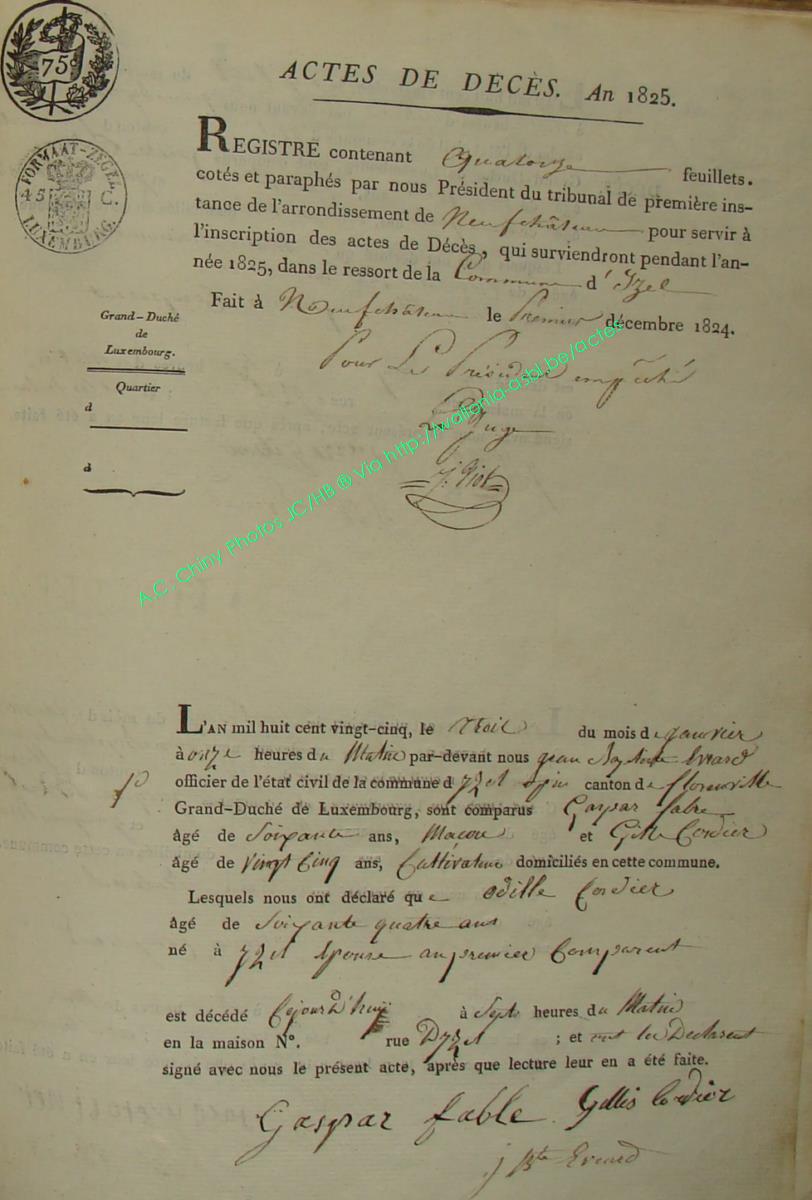 75
ACTES DE DÉCÈS. An 1825.
FORMAAT-ZEGEL
45 C.
LUXEMBURG.
REGISTRE contenant quatorze feuillets.
cotés et paraphés par nous Président du tribunal de première ins-
tance de l'arrondissement de Neufchâteau pour servir à
l'inscription des actes de Décès, qui surviendront pendant l'an-
née 1825, dans le ressort de la Commune d'Izel
Fait à Neufchâteau le Premier décembre 1824.
Grand-Duché
de
Luxembourg.
Quartier
d
d
Pour Le Président empêché
Juge
A.C. Chiny Photos JC/HB ® Via http://wallonia-asbl.be/actes
L'AN mil huit cent vingt-cinq, le trois du mois de janvier
à onze heures du Matin par-devant nous jean Baptiste Evrard
officier de l'état civil de la commune d'yzel canton de florenville
Grand-Duché de Luxembourg, sont comparus Gaspar fable
âgé de Soixante ans, Maçon et Gille Cordier
âgé de vingt Cinq ans, Cultivateur domiciliés en cette commune.
Lesquels nous ont déclaré que Odille Cordier
âgé de Soixante quatre ans
né à yzel Epouse au premier Comparent
est décédé Cejourd'huy à Sept heures du Matin
en la maison N°. rue D'yzel ; et ont les Declarent
signé avec nous le présent acte, après que lecture leur en a été faite.
Gaspar fable Gillis Cordier
j Bte Evrard